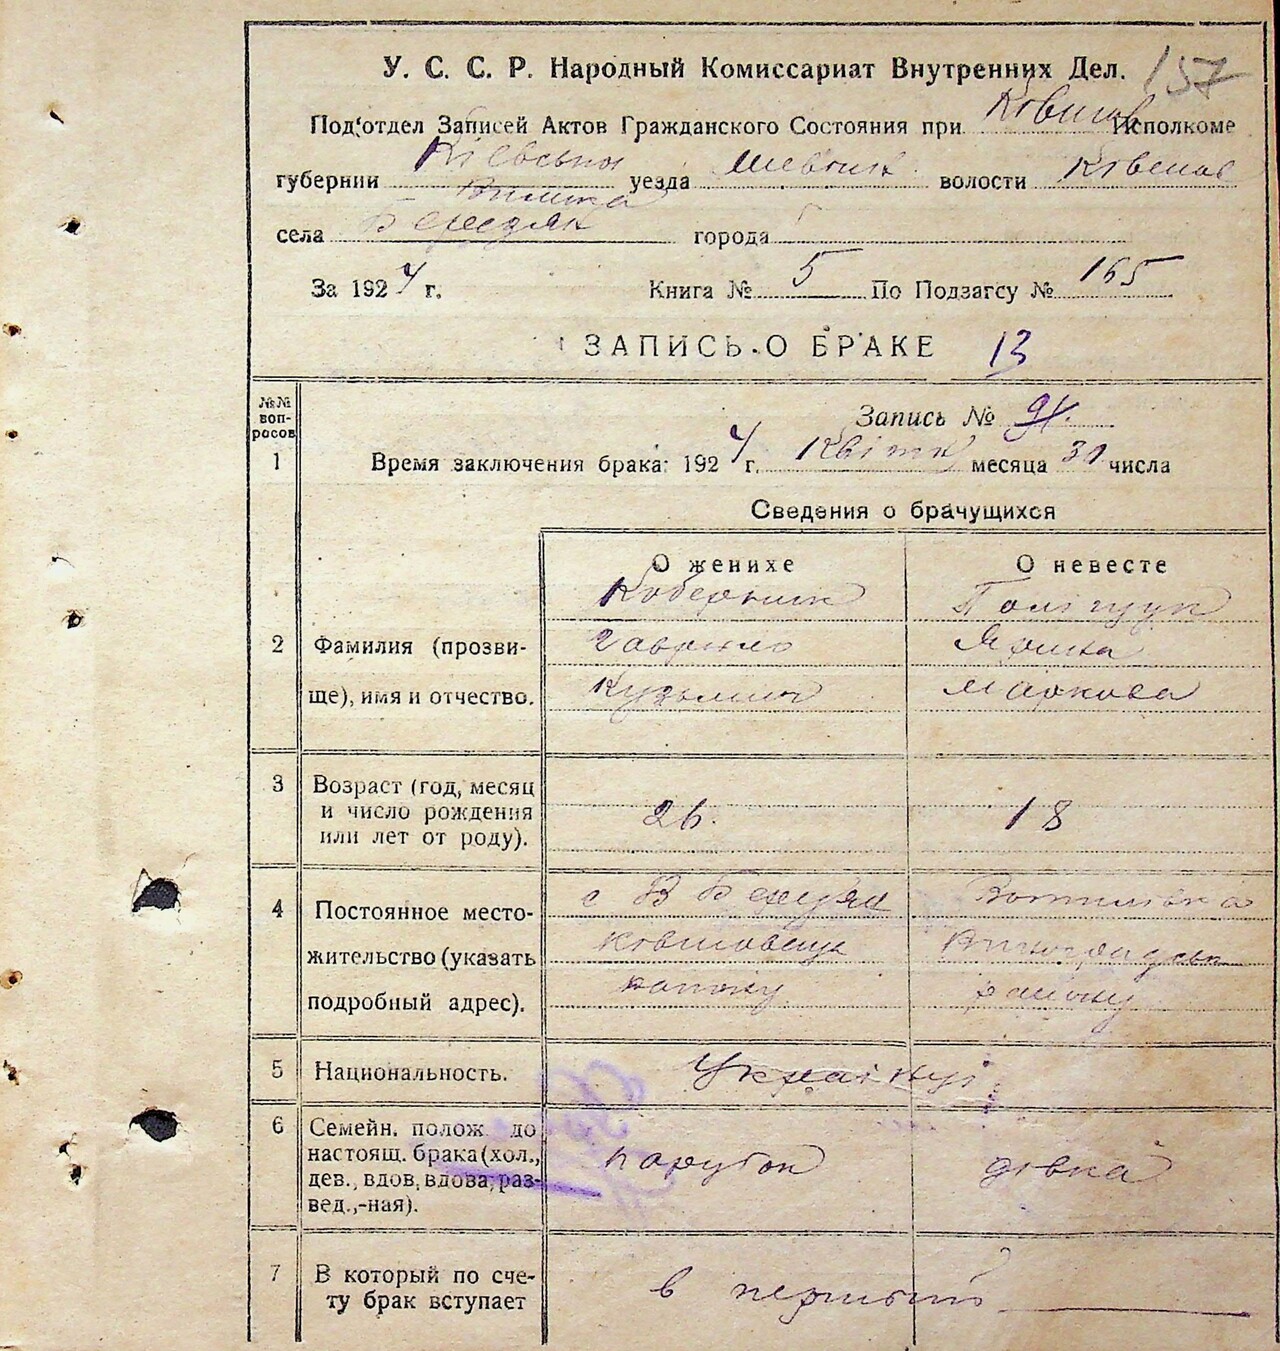 157
У. С. С. Р. Народный Комиссариат Внутренних Дел.
Под'отдел Записей Актов Гражданского Состояния при Исполкоме
губернии Київська уезда волости
села Березян города
За 1924 г. Книга № 5 По Подзагсу № 165
ЗАПИСЬ О БРАКЕ 13
№№ воп-росов
Запись № 91.
1 Время заключения брака: 1924 г. Квітня месяца 30 числа
Сведения о брачущихся
О женихе О невесте
Коберник Поліщук
2 Фамилия (прозви- Гаврило Ярина
ще), имя и отчество. Кузьмич Маркова
3 Возраст (год, месяц
и число рождения 26. 18
или лет от роду).
с В Березян
4 Постоянное место-
жительство (указать
подробный адрес). району району
5 Национальность. Українці
6 Семейн. полож. до
настоящ. брака (хол., парубок дівка
дев., вдов, вдова, раз-
вед.,-ная).
7 В который по сче- в первый
ту брак вступает